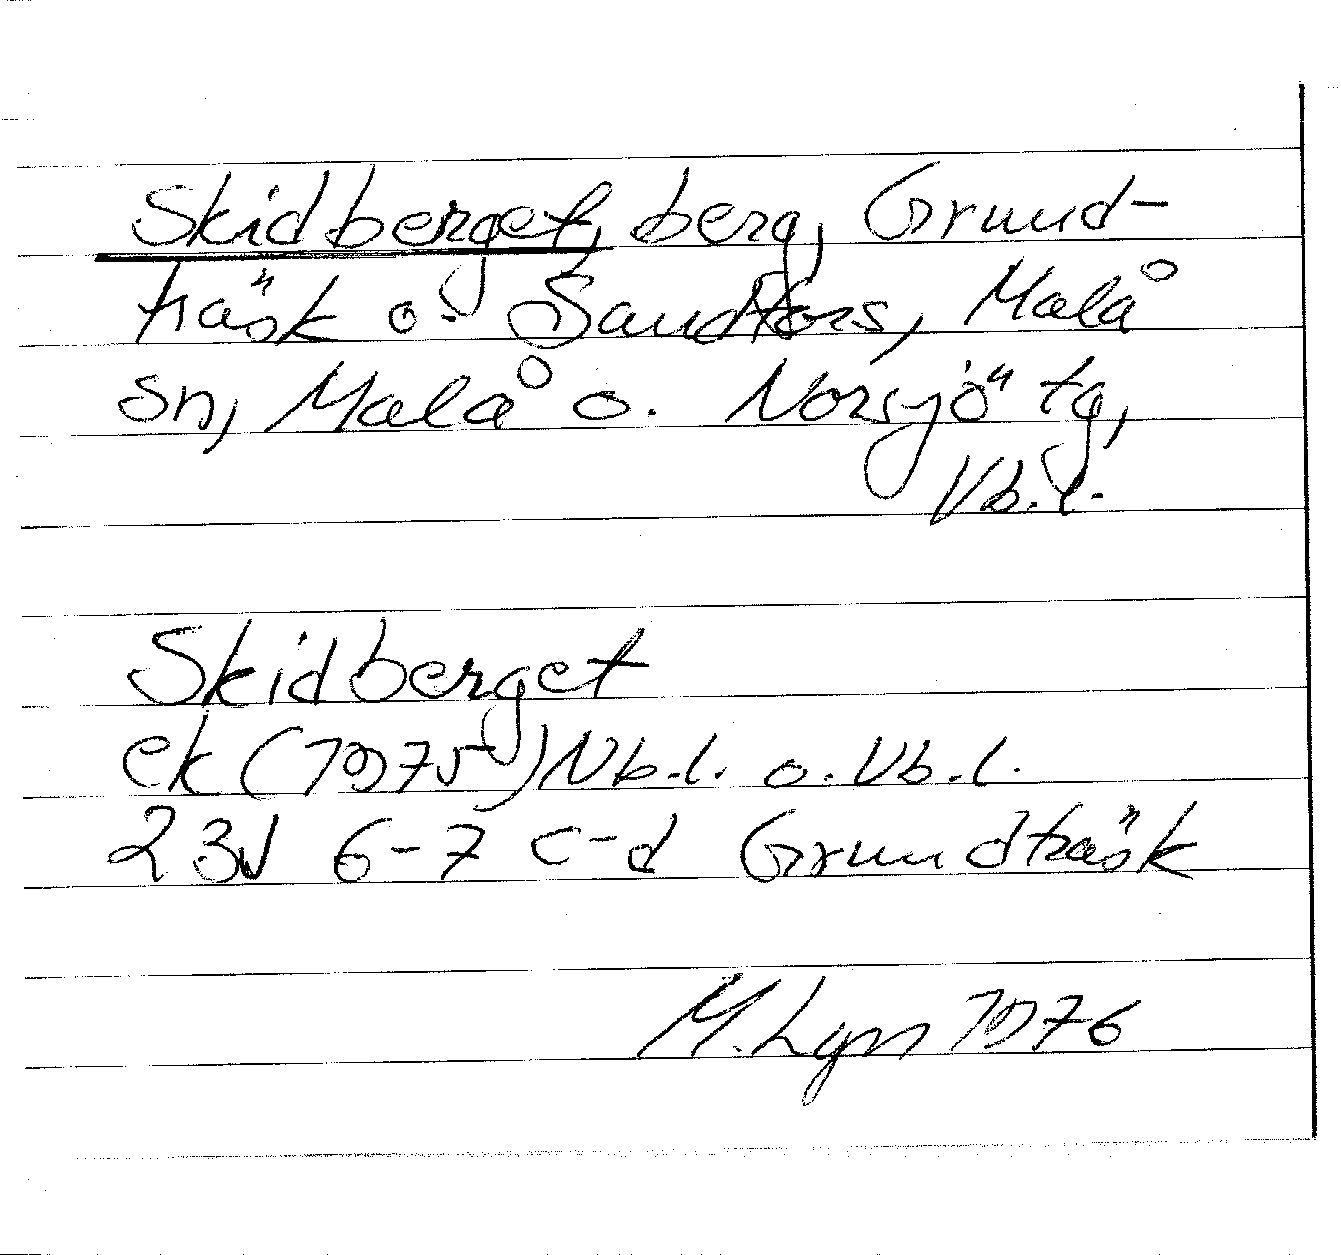 Skidberget, berg, Grund-
träsk o. Sandfors, Malå
sn, Malå o. Norsjö tg,
Vb.l.
Skidberget
ek (1975) Nb.l. o. Vb.l.
23J 6-7 c-d Grundträsk
M. Lyn 1976